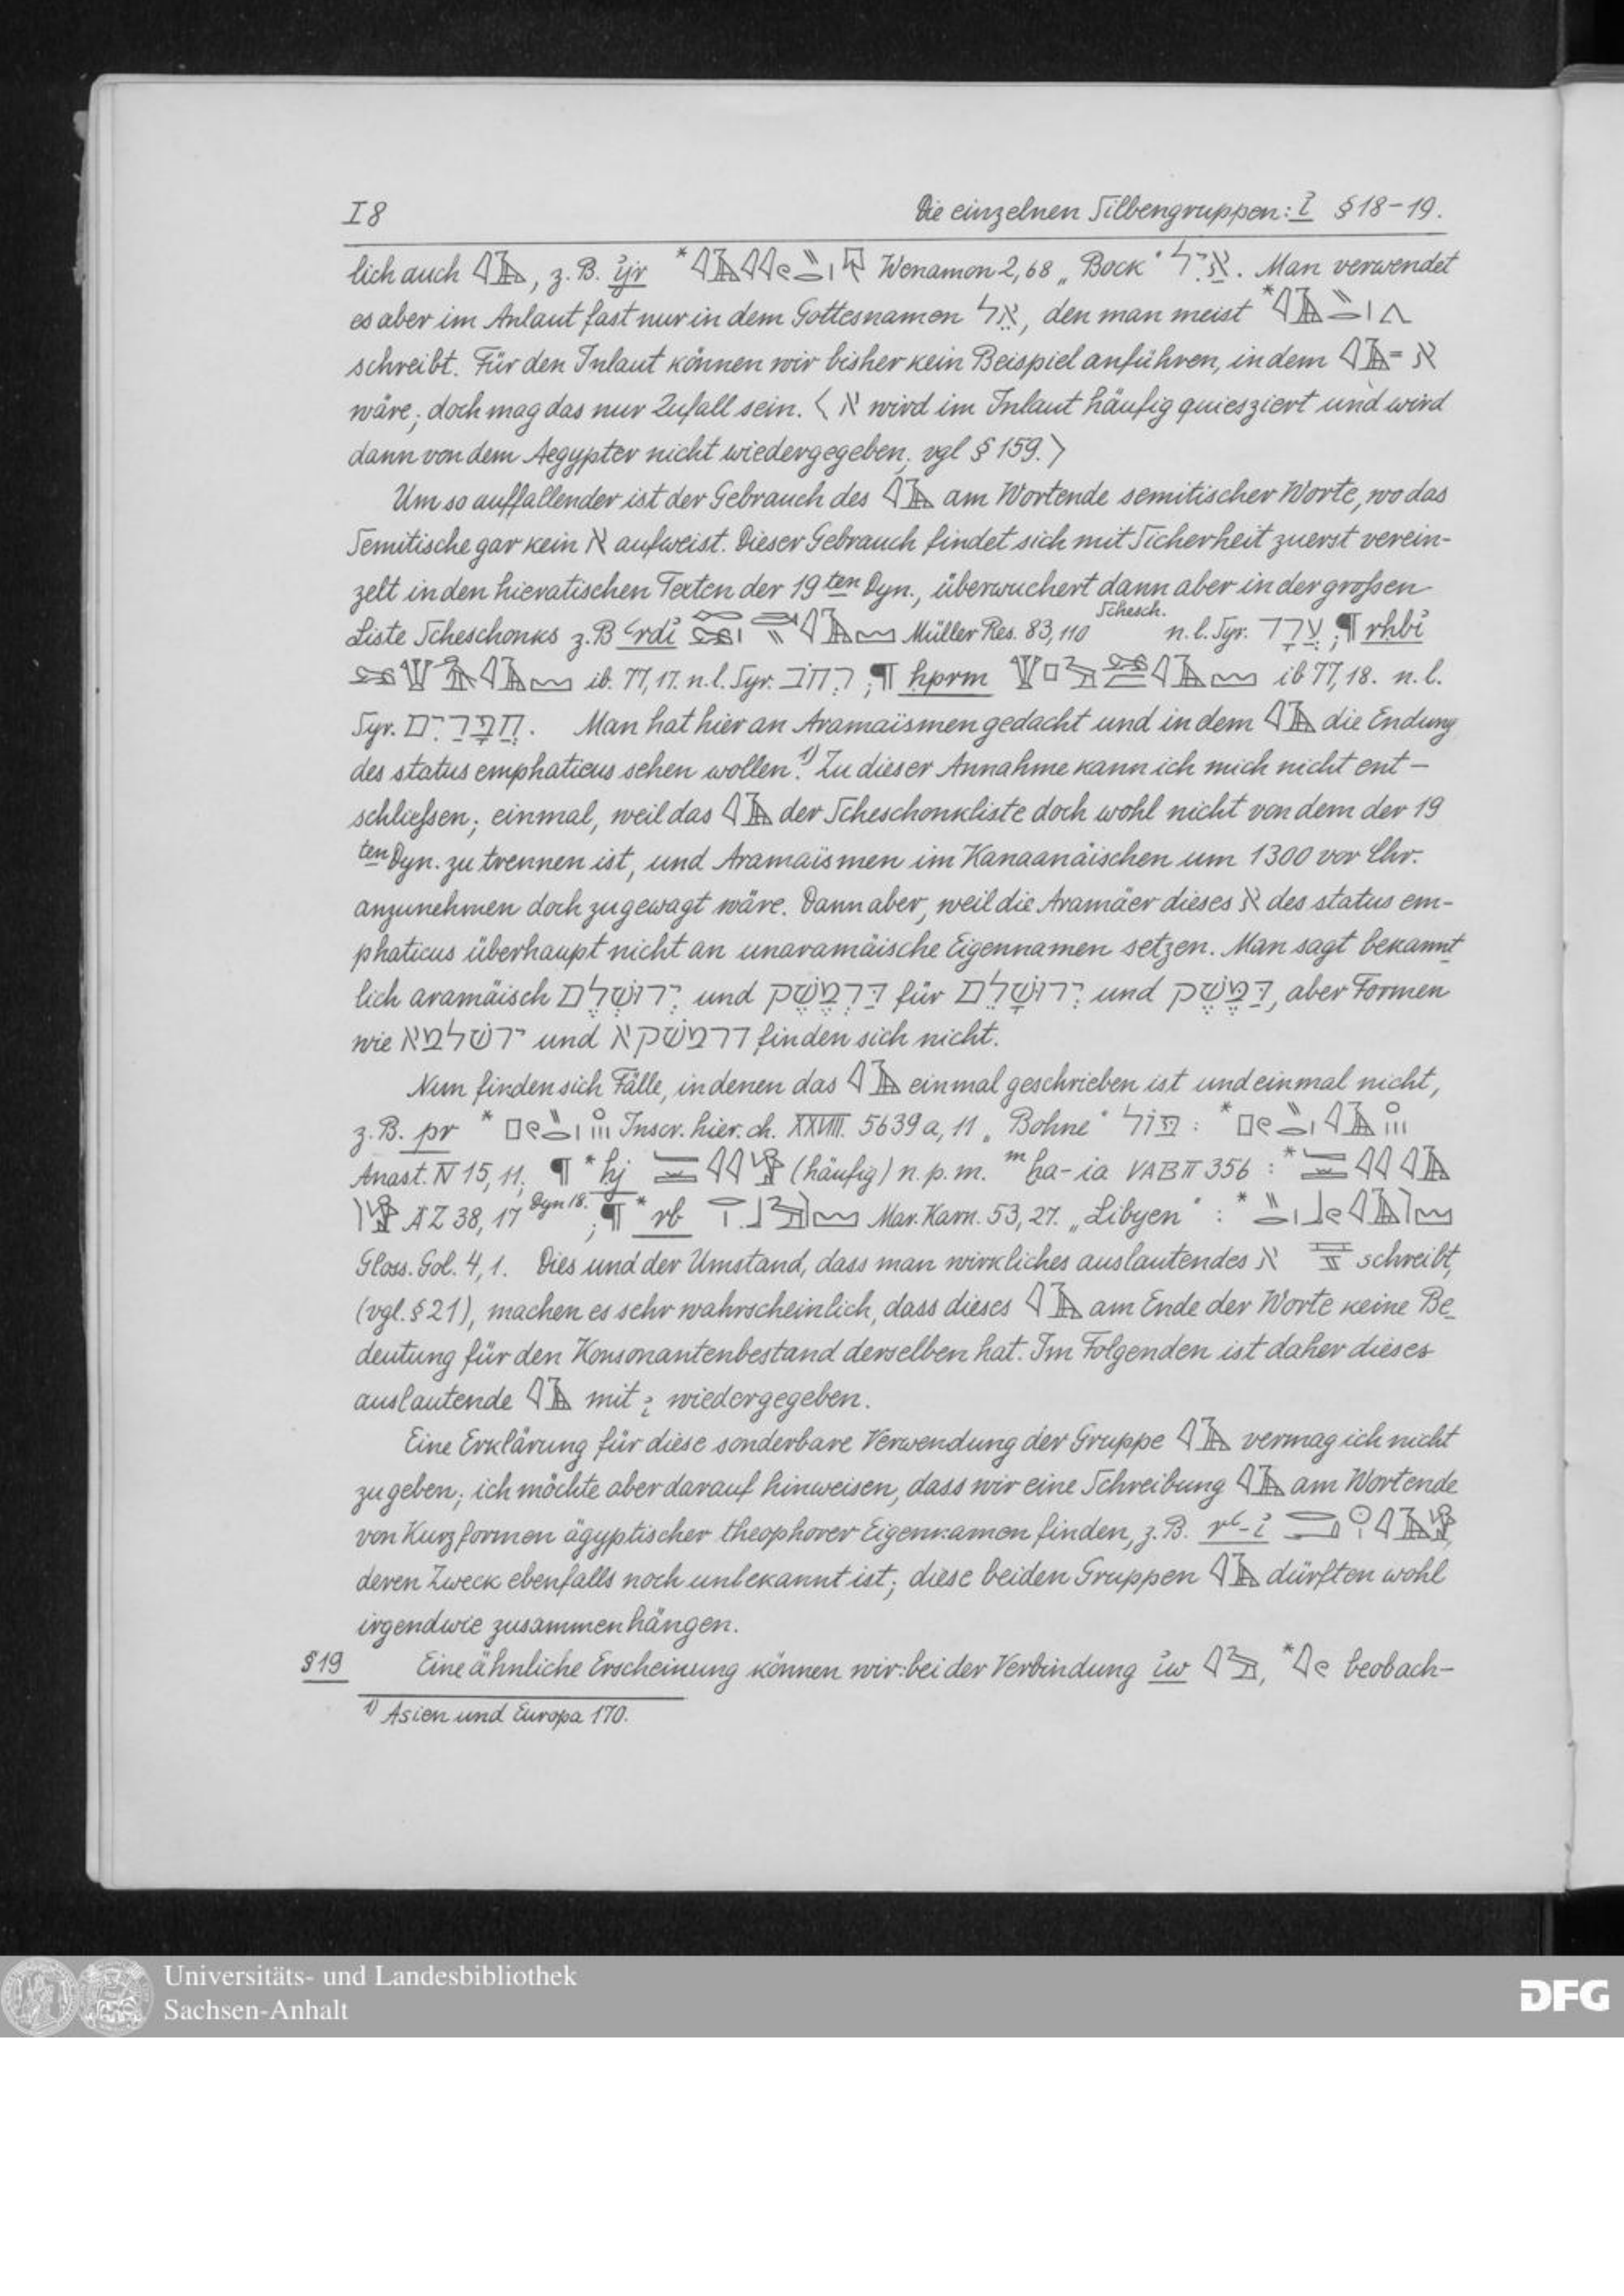 I 8 Die einzelnen Silbengruppen: i̓ § 18-19.
lich auch, z. B. i̓jr * Wenamon 2,68 „Bock“ אַיִל. Man verwendet
es aber im Anlaut fast nur in dem Gottesnamen אֵל, den man meist *
schreibt. Für den Inlaut können wir bisher kein Beispiel anführen, in dem = א
wäre; doch mag das nur Zufall sein. < א wird im Inlaut häufig quiesziert und wird
dann von dem Aegypter nicht wiedergegeben, vgl § 159.>
Um so auffallender ist der Gebrauch des am Wortende semitischer Worte, wo das
Semitische gar kein א aufweist. Dieser Gebrauch findet sich mit Sicherheit zuerst verein-
zelt in den hieratischen Texten der 19ten Dyn., überwuchert dann aber in der großen
Liste Scheschonks z. B ʿrdi̓ Müller Res. 83, 110 Schesch. n. l. Syr. עֲרָד; ¶ rḥbi̓
ib. 77, 17. n. l. Syr. רחב; ¶ ḥprm ib 77, 18. n. l.
Syr. חֲפָרַיִם. Man hat hier an Aramaïsmen gedacht und in dem die Endung
des status emphaticus sehen wollen.1) Zu dieser Annahme kann ich mich nicht ent-
schließen; einmal, weil das der Scheschonkliste doch wohl nicht von dem der 19
ten Dyn. zu trennen ist, und Aramaïsmen im Kanaanäischen um 1300 vor Chr.
anzunehmen doch zu gewagt wäre. Dann aber, weil die Aramäer dieses א des status em-
phaticus überhaupt nicht an unaramäische Eigennamen setzen. Man sagt bekannt
lich aramäisch יְרוּשְׁלֶם und דַּרְמֶשֶׂק für יְרוּשָׁלֵם und דַּמֶּשֶׂק, aber Formen
wie ירשלמא und דרמשקא finden sich nicht.
Nun finden sich Fälle, in denen das einmal geschrieben ist und einmal nicht,
z. B. pr * Inscr. hier. ch. XXVIII. 5639 a, 11 „Bohne“ פול : *
Anast. IV 15, 11; ¶ * hj (häufig) n. p. m. m ḫa-ia VAB II 356 : *
ÄZ 38, 17 Dyn 18. ; ¶ * rb Mar. Karn. 53, 27. „Libyen“ : *
Gloss. Gol. 4, 1. Dies und der Umstand, dass man wirkliches auslautendes א schreibt,
(vgl. § 21), machen es sehr wahrscheinlich, dass dieses am Ende der Worte keine Be-
deutung für den Konsonantenbestand derselben hat. Im Folgenden ist daher dieses
auslautende mit wiedergegeben.
Eine Erklärung für diese sonderbare Verwendung der Gruppe vermag ich nicht
zu geben; ich möchte aber darauf hinweisen, dass wir eine Schreibung am Wortende
von Kurzformen ägyptischer theophorer Eigennamen finden, z. B. rʿ-i̓
deren Zweck ebenfalls noch unbekannt ist; diese beiden Gruppen dürften wohl
irgendwie zusammenhängen.
§ 19 Eine ähnliche Erscheinung können wir bei der Verbindung i̓w, * beobach-
1) Asien und Europa 170.
Universitäts- und Landesbibliothek
Sachsen-Anhalt
DFG